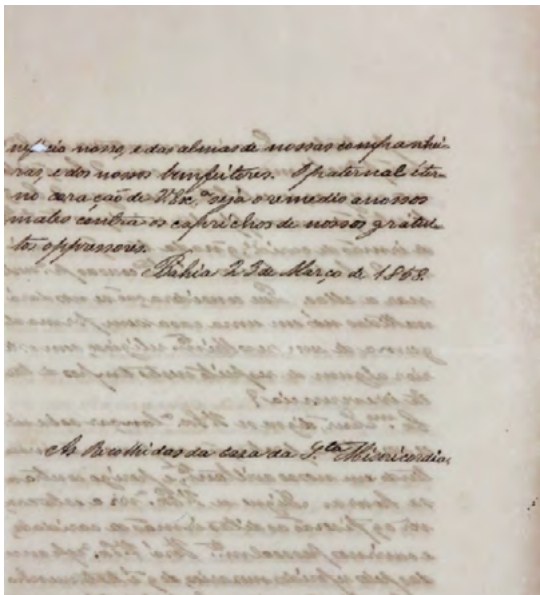 neficio nosso, e das almas de nossas companhei-
ras, e dos nossos bemfeitores. O paternal e ter-
no coração de V. Exc.ª seja o remedio a nossos
males contra os caprichos de nossos gratui-
tos oppressores.
Bahia 23 de Março de 1858.
As Recolhidas da casa da S.ta Misericordia.